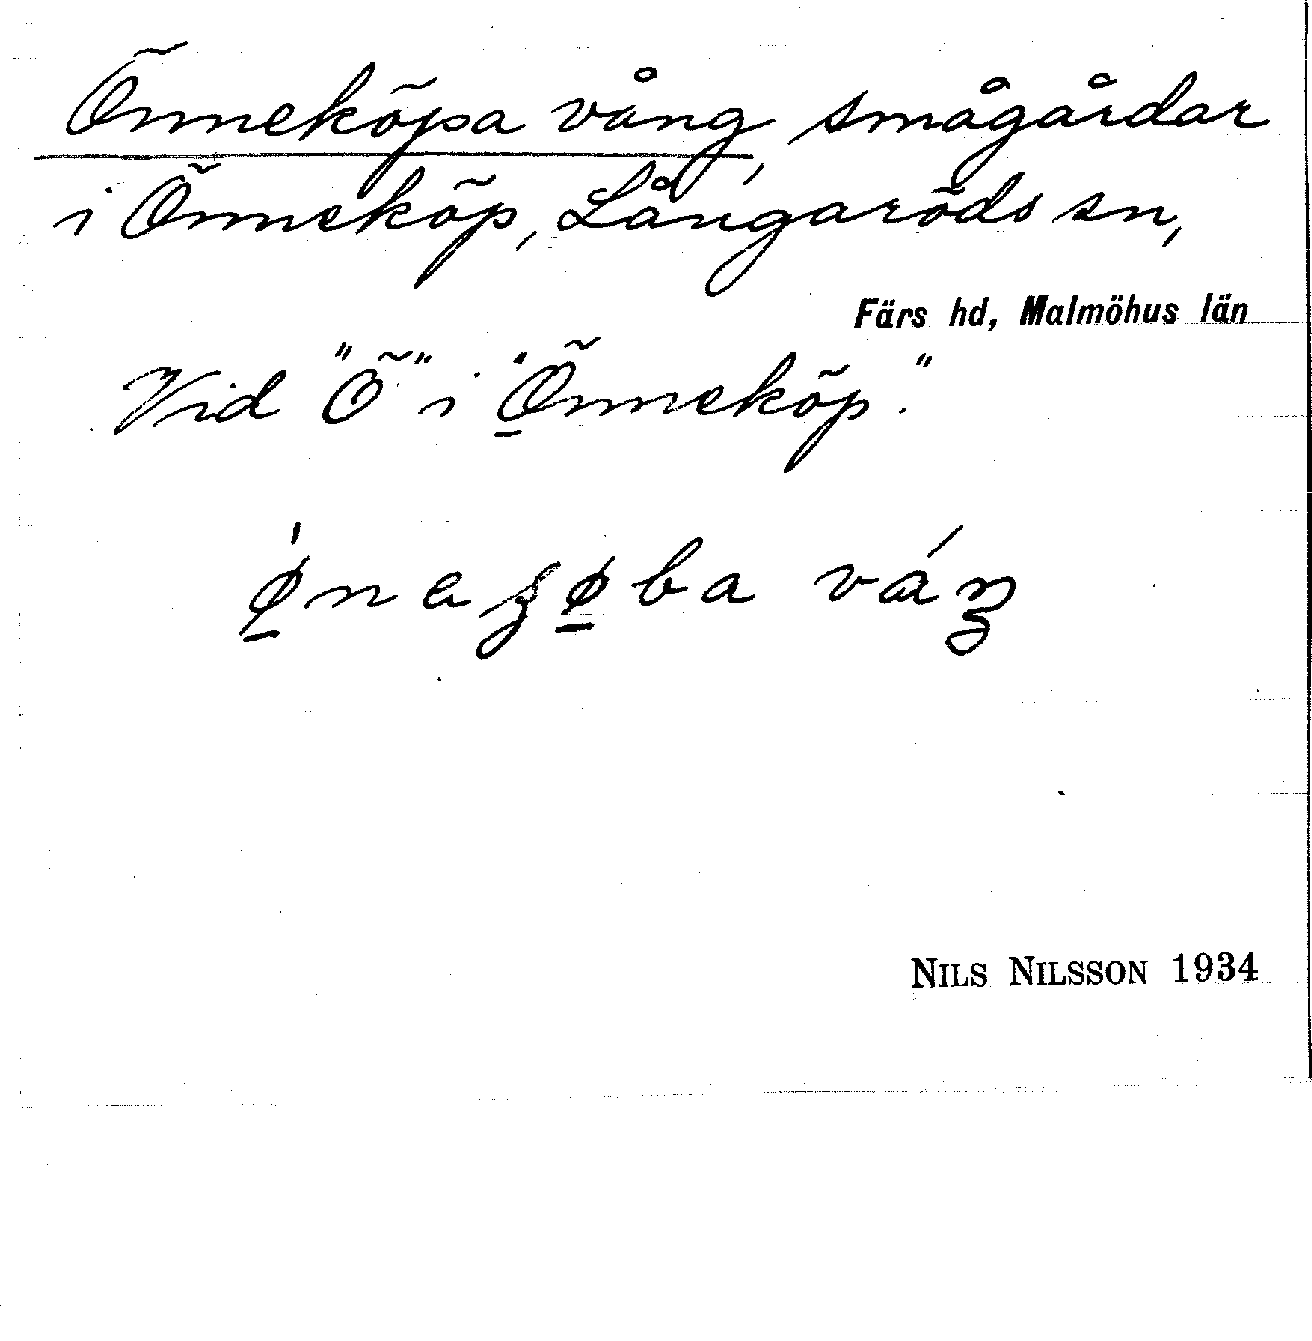 Önneköpa vång, smågårdar
i Önneköp, Långaröds sn,
Färs hd, Malmöhus län
Vid "Ö" i "Önneköp."
NILS NILSSON 1934